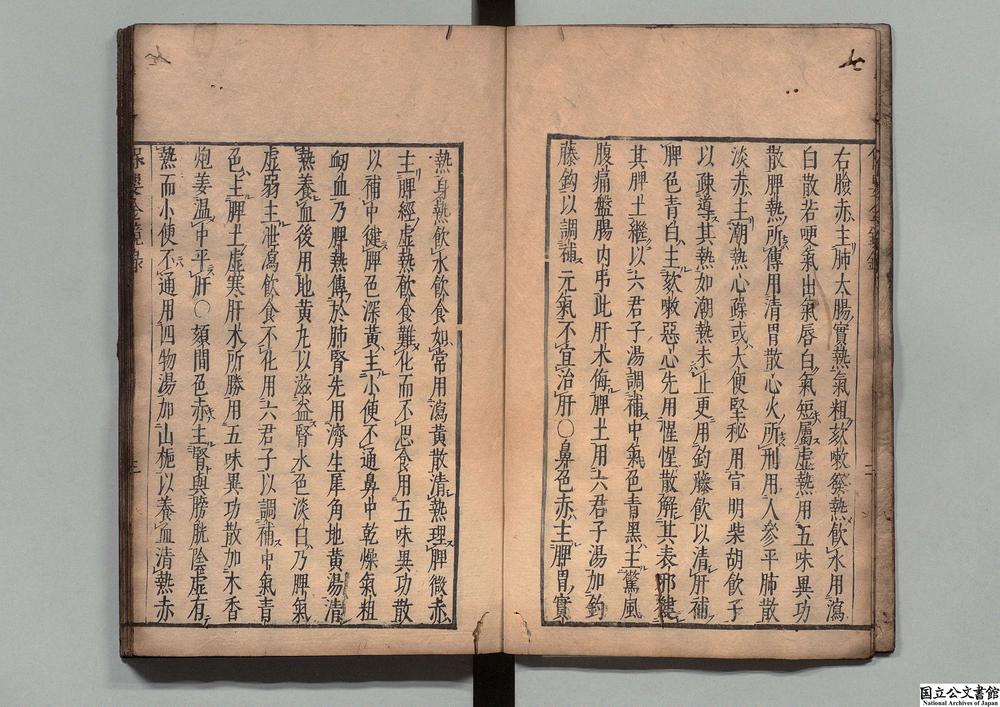 七
右臉赤主肺大腸實熱氣粗咳嗽發熱飲水用瀉
白散若哽氣出氣唇白氣短屬虛熱用五味異功
散脾熱所傳用清胃散心火所刑用人參平肺散
淡赤主潮熱心躁或大便堅秘用宣明柴胡飲子
以疎導其熱如潮熱未止更用釣藤飲以清肝補
脾色青白主咳嗽惡心先用惺惺散解其表邪健
其脾土繼以六君子湯調補中氣色青黑主驚風
腹痛盤腸內吊此肝木侮脾土用六君子湯加釣
藤鈎以調補元氣不宜治肝〇鼻色赤主脾胃實
熱身熱飲水飲食如常用瀉黃散清熱理脾微赤
主脾經虛熱飲食難化而不思食用五味異功散
以補中健脾色深黃主小便不通鼻中乾燥氣粗
衂血乃脾熱傳於肺腎先用濟生犀角地黃湯清
熱養血後用地黃丸以滋益腎水色淡白乃脾氣
虛弱主泄瀉飲食不化用六君子以調補中氣青
色主脾土虛寒肝木所勝用五味異功散加木香
炮姜溫中平肝〇頦間色赤主腎與膀胱陰虛有
熱而小便不通用四物湯加山梔以養血清熱赤
保嬰金鏡錄
三
国立公文書館
National Archives of Japan